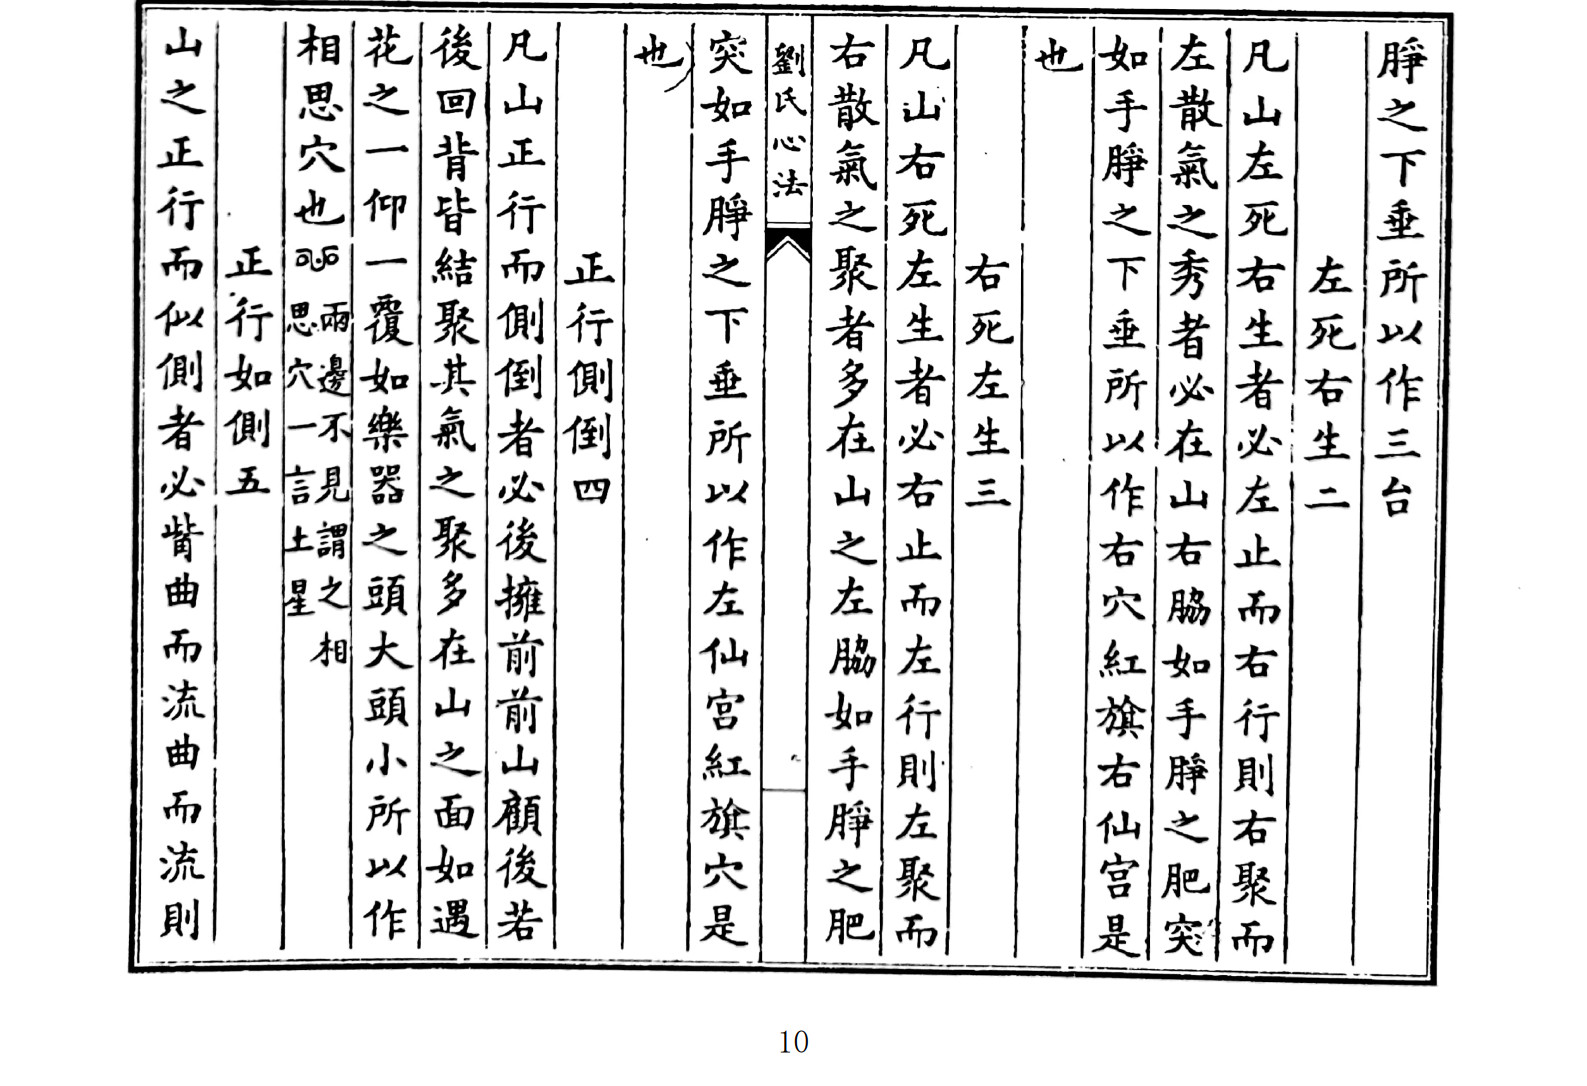 脝之下垂所以作三台
左死右生二
凡山左死右生者必左止而右行則右聚而
左散氣之秀者必在山右脇如手脝之肥突
如手脝之下垂所以作右穴紅旗右仙宫是
也
右死左生三
凡山右死左生者必右止而左行則左聚而
右散氣之聚者多在山之左脇如手脝之肥
劉氏心法
突如手脝之下垂所以作左仙宫紅旗穴是
也
正行側倒四
凡山正行而側倒者必後擁前前山顧後若
後回背皆結聚其氣之聚多在山之面如遇
花之一仰一覆如樂器之頭大頭小所以作
相思穴也
兩邊不見謂之相
思穴一言土星
正行如側五
山之正行而似側者必觜曲而流曲而流則
10